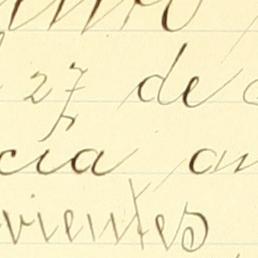 27 de
cia an
vientes